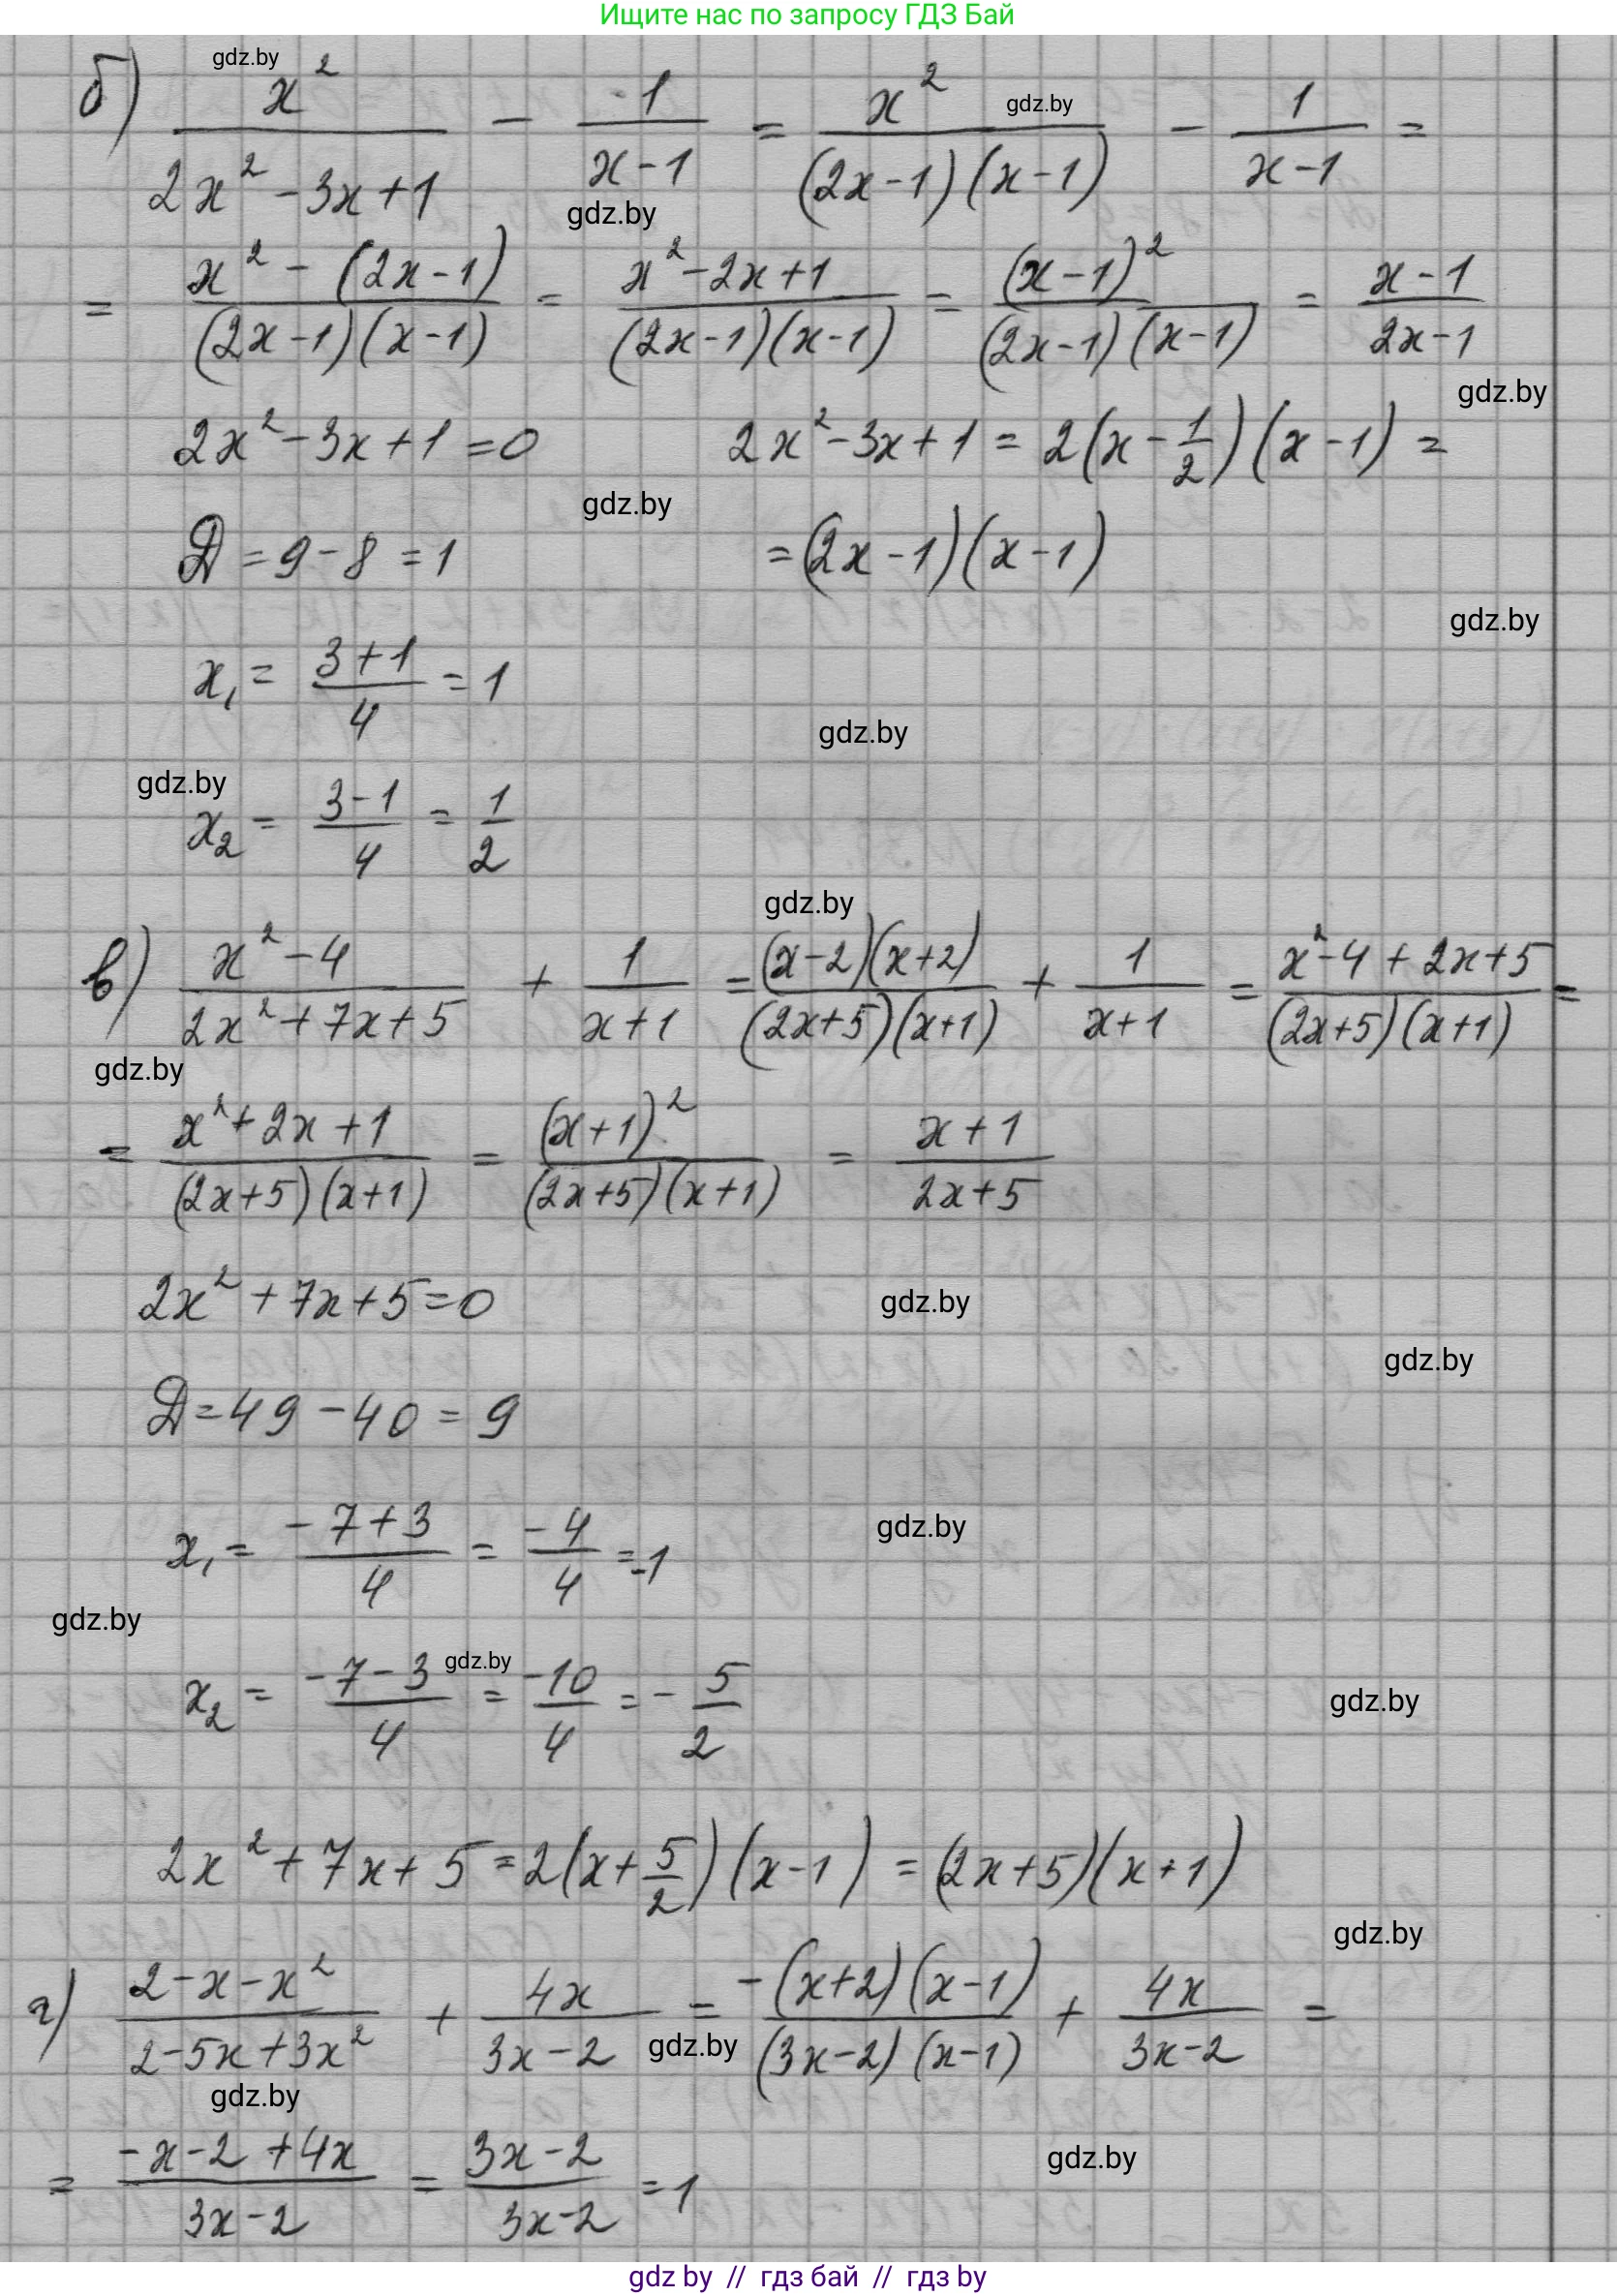 Ищите нас по запросу ГДЗ Бай
gdz.by
б) x²/(2x²-3x+1) - 1/(x-1) = x²/((2x-1)(x-1)) - 1/(x-1) =
gdz.by
gdz.by
= (x²-(2x-1))/((2x-1)(x-1)) = (x²-2x+1)/((2x-1)(x-1)) = (x-1)²/((2x-1)(x-1)) = (x-1)/(2x-1)
gdz.by
2x²-3x+1=0 2x²-3x+1 = 2(x-1/2)(x-1) =
gdz.by
D=9-8=1 =(2x-1)(x-1)
gdz.by
x₁ = (3+1)/4 = 1
gdz.by
gdz.by
x₂ = (3-1)/4 = 1/2
gdz.by
в) (x²-4)/(2x²+7x+5) + 1/(x+1) = (x-2)(x+2)/((2x+5)(x+1)) + 1/(x+1) = (x²-4+2x+5)/((2x+5)(x+1)) =
gdz.by
= (x²+2x+1)/((2x+5)(x+1)) = (x+1)²/((2x+5)(x+1)) = (x+1)/(2x+5)
2x²+7x+5=0
gdz.by
gdz.by
D=49-40=9
x₁ = (-7+3)/4 = -4/4 = -1
gdz.by
gdz.by
x₂ = (-7-3)/4 = -10/4 = -5/2
gdz.by
gdz.by
2x²+7x+5=2(x+5/2)(x-1)=(2x+5)(x+1)
gdz.by
г) (2-x-x²)/(2-5x+3x²) + 4x/(3x-2) = -(x+2)(x-1)/((3x-2)(x-1)) + 4x/(3x-2) =
gdz.by
gdz.by
= (-x-2+4x)/(3x-2) = (3x-2)/(3x-2) = 1
gdz.by
gdz by // гдз бай // гдз by